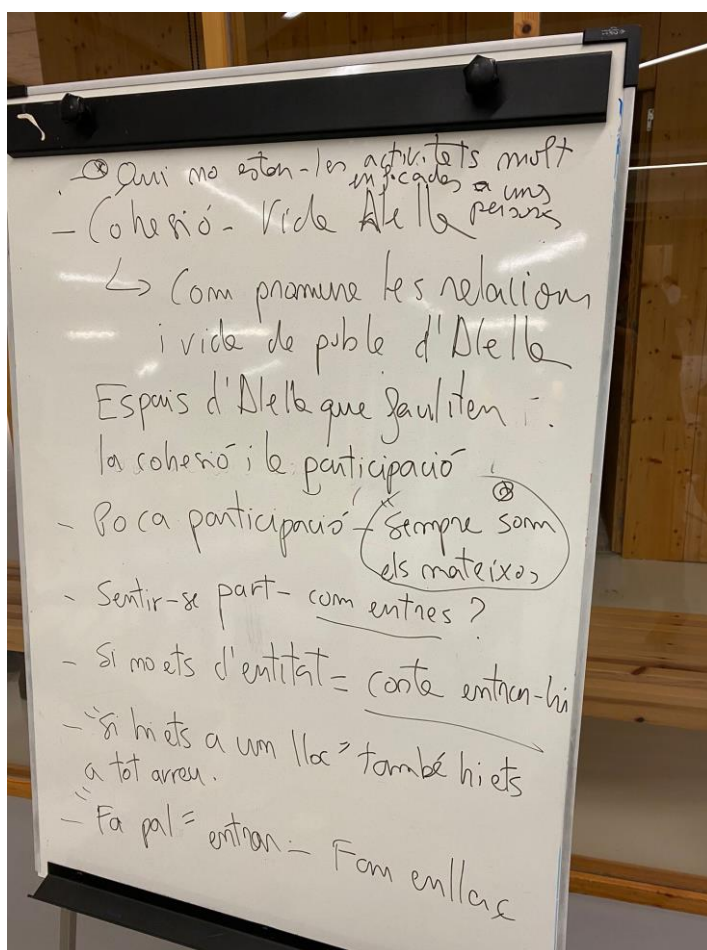 - ⊗ Qui no estan-les activitats molt
enfocades a uns
persones
- Cohesió - Vida Alella
↳ Com promure les relacions
i vida de poble d'Alella
Espais d'Alella que faciliten
la cohesió i la participació
- Poca participació - "Sempre som
els mateixos
- Sentir-se part - com entres?
- Si no ets d'entitat = costa entrar-hi
- "Si hi ets a un lloc" també hi ets
a tot arreu.
- "Fa pal" entrar - Fam enllaç